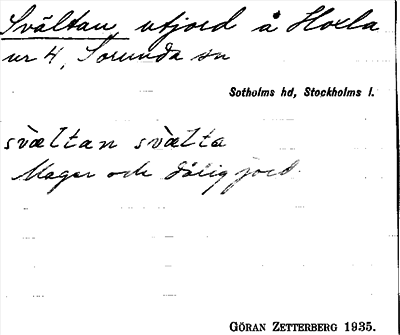 Svältan, utjord å Hoxla
nr 4, Sorunda sn
Sotholms hd, Stockholms l.
svæltan svælta
Mager och dålig jord.
GÖRAN ZETTERBERG 1935.